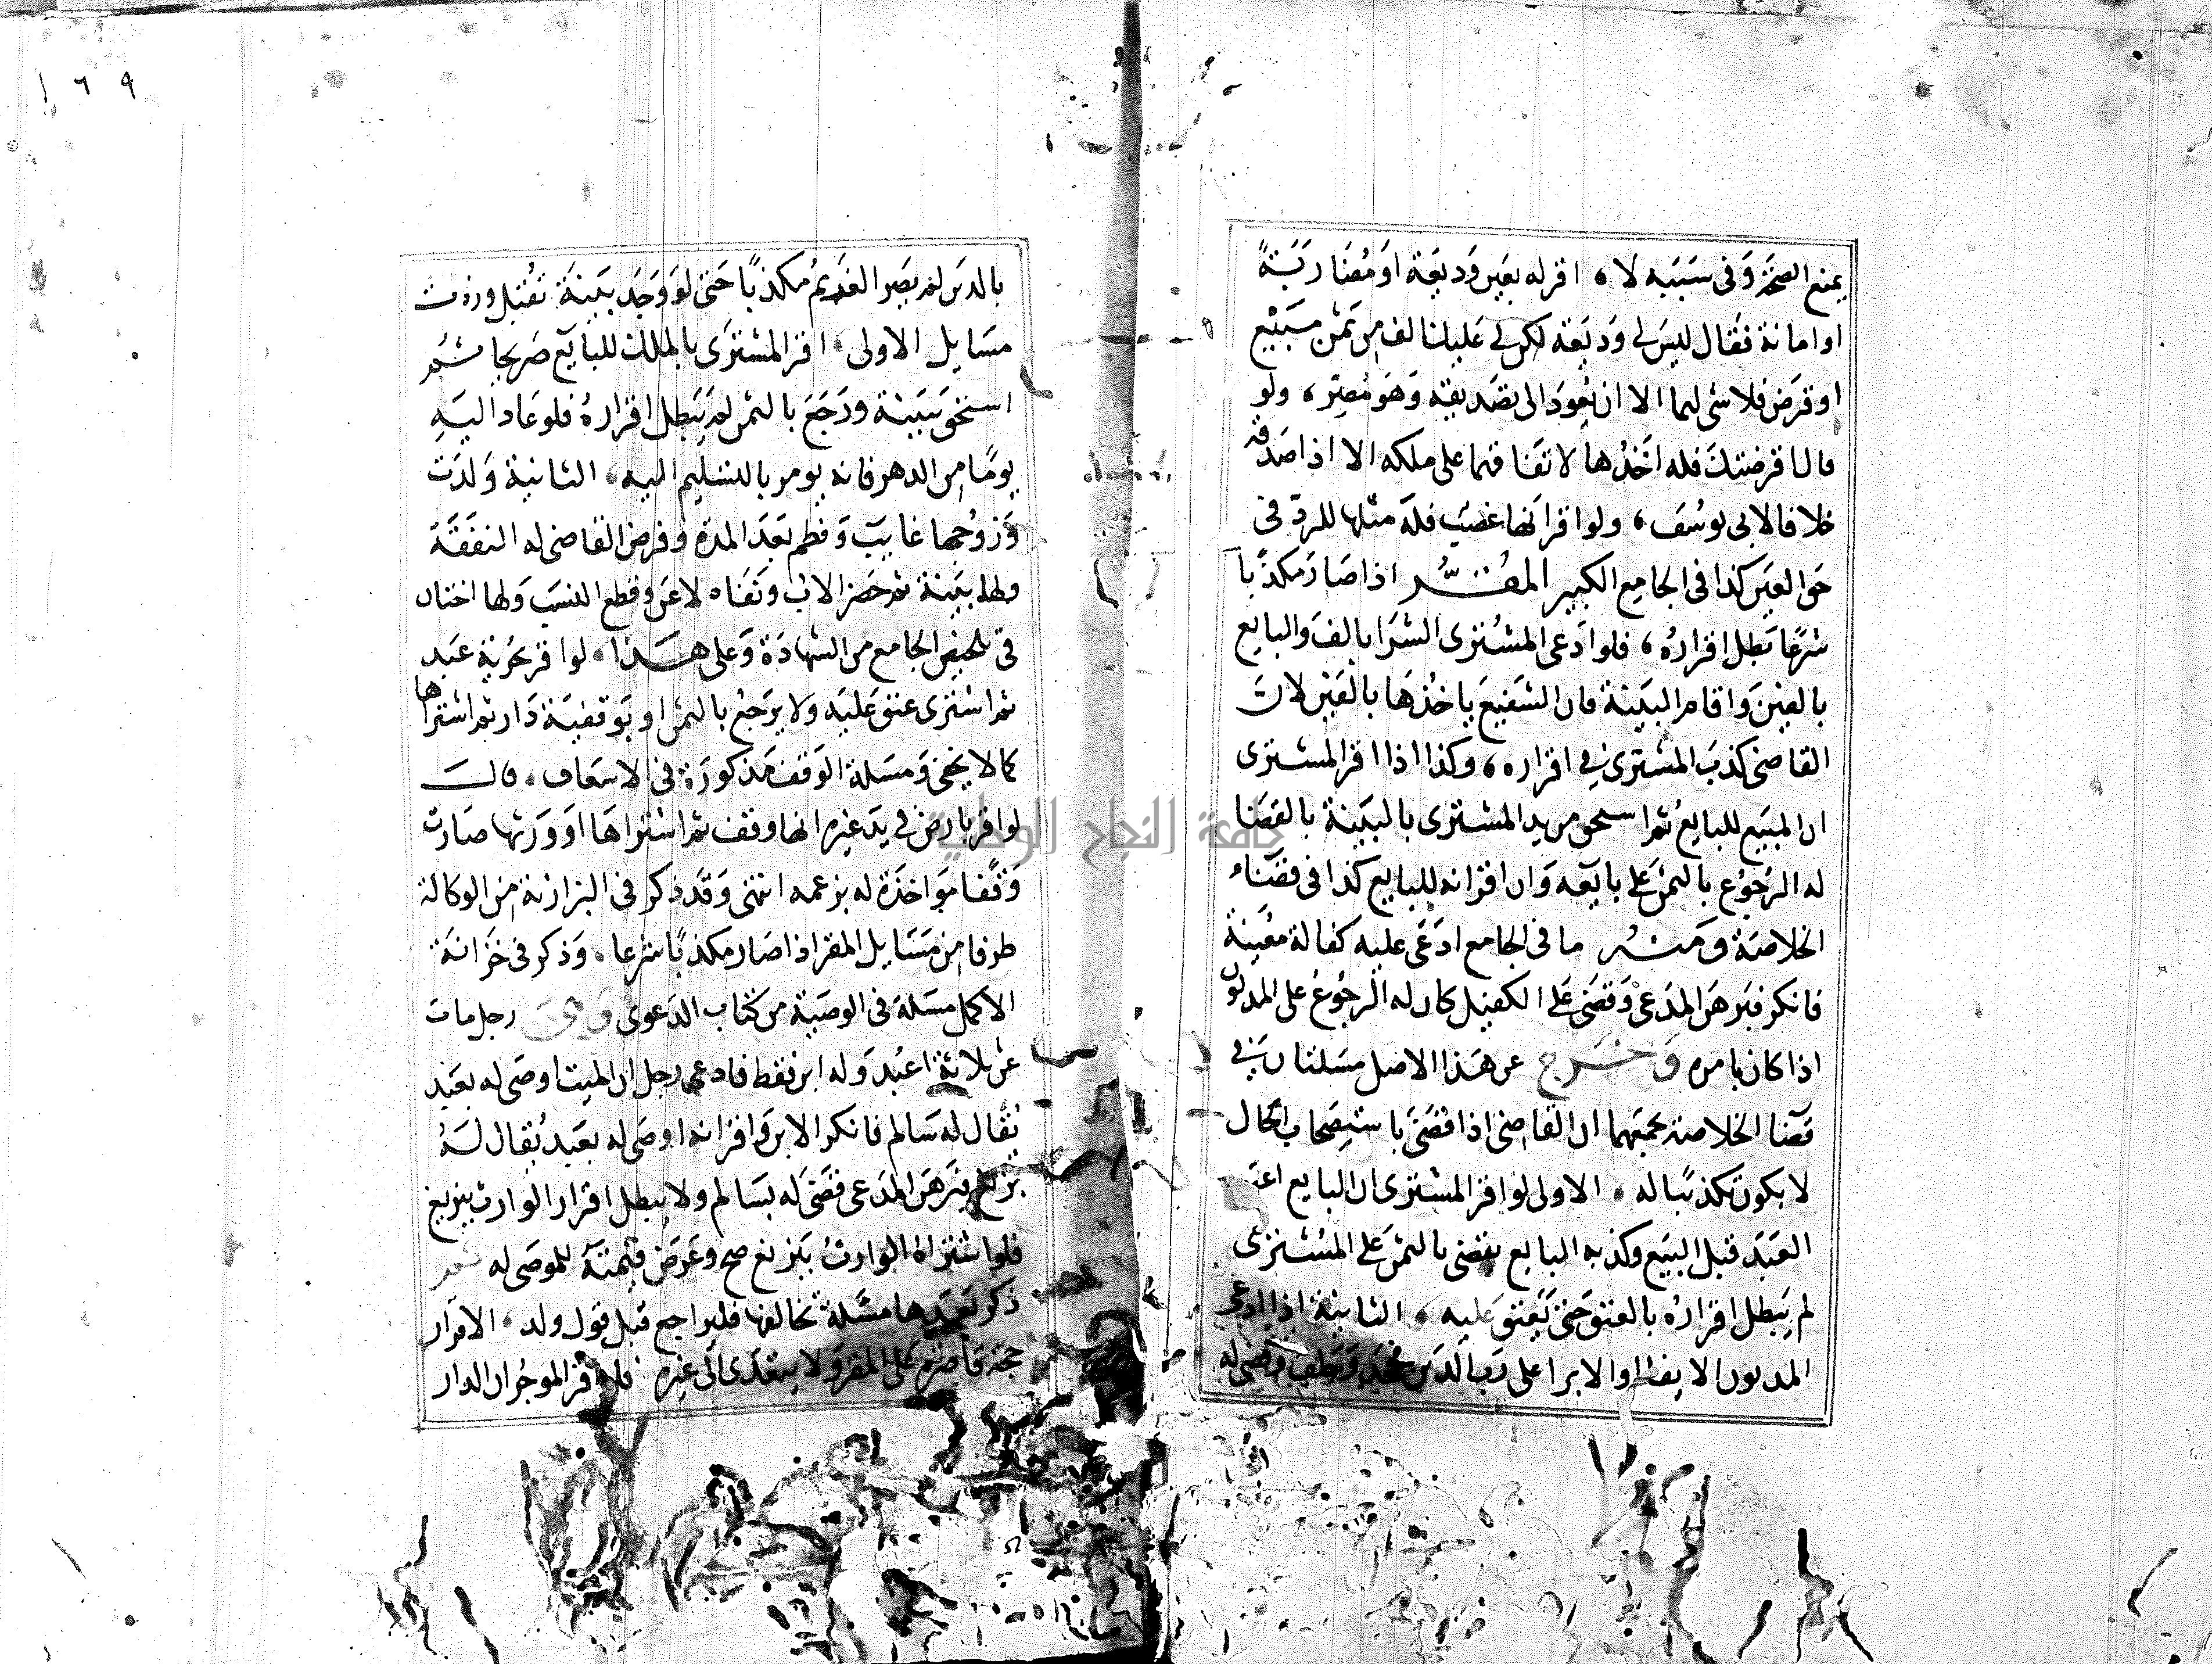 ١٦٩
يمنع الصحة وفى سببه لا، اقر له بعين وديعة او مضاربة
او امانة فقال ليس لى وديعة لكن لى عليك الف من ثمن مبيع
او قرض فلا شى لهما الا ان يعود الى تصديقه وهو مصر، ولو
قال اقرضتك فله اخذها لاتفاقهما على ملكه الا اذا صدقه
خلافا لابى يوسف، ولو اقر انها غصب فله مثلها للرد فى
حق العين كذا فى الجامع الكبير المقر اذا صار مكذبا
شرعا بطل اقراره، فلو ادعى المشترى الشرا بالف والبايع
بالفين واقام البينة فان الشفيع ياخذها بالفين لان
القاضى كذب المشترى فى اقراره، وكذا اذا اقر المشترى
ان المبيع للبايع ثم استحق من يد المشترى بالبينة بالقضا
له الرجوع بالثمن على بايعه وان اقر انه للبايع كذا فى قضاء
الخلاصة ومنه ما فى الجامع ادعى عليه كفالة معينة
فانكر فبرهن المدعى وقضى على الكفيل كان له الرجوع على المديون
اذا كان بامره وخرج عن هذا الاصل مسلتان فى
قضا الخلاصة يجمعهما ان القاضى اذا قضى باستصحاب الحال
لا يكون تكذيبا له، الاولى لو اقر المشترى ان البايع اعتق
العبد قبل البيع وكذبه البايع يقضى بالثمن على المشترى
لم يبطل اقراره بالعتق حتى يعتق عليه، الثانية اذا ادعى
المديون الايفا او الابرا على رب الدين فجحد وحلف وقضى له
بالدين لم يصر الغريم مكذبا حتى لو وجد بينة تقبل وزدت
مسايل الاولى، اقر المشترى بالملك للبايع صريحا ثم
استحق ببينة ورجع بالثمن لم يبطل اقراره فلو عاد اليه
يوما من الدهر فانه يومر بالتسليم اليه، الثانية ولدت
وزوجها غايب وفطم بعد المدة وفرض القاضى له النفقة
ولها بينة ثم حضر الاب ونفاه لاعن وقطع النسب ولها اختان
فى تلخيص الجامع من الشهادة وعلى هذا، لو اقر بحرية عبد
ثم اشترى عتق عليه ولا يرجع بالثمن او بوقفية دار ثم اشتراها
كما لا يخفى ومسلة الوقف مذكورة فى الاسعاف، قال
لو اقر بارض فى يد غيره انها وقف ثم اشتراها او ورثها صارت
وقفا مواخذة له بزعمه انتهى وقد ذكر فى البزازية من الوكالة
طرفا من مسايل المقر اذا صار مكذبا شرعا، وذكر فى خزانة
الاكمل مسلة فى الوصية من كتاب الدعوى وهى رجل مات
عن ثلاثة اعبد وله ابن فقط فادعى رجل ان الميت اوصى له بعبد
يقال له سالم فانكر الابن واقر انه اوصى له بعبد يقال له
بزيغ فبرهن المدعى قضى له بسالم ولا يبطل اقرار الوارث ببزيغ
فلو اشتراه الوارث ببزيغ صح وغرض قيمته للموصى له ثم
ذكر بعدها مسلة تخالفها فليراجع قبل قول ولد، الاقرار
حجة قاصرة على المقر ولا يتعدى الى غيره فلو اقر الموجر ان الدار
جامعة النجاح الوطنية